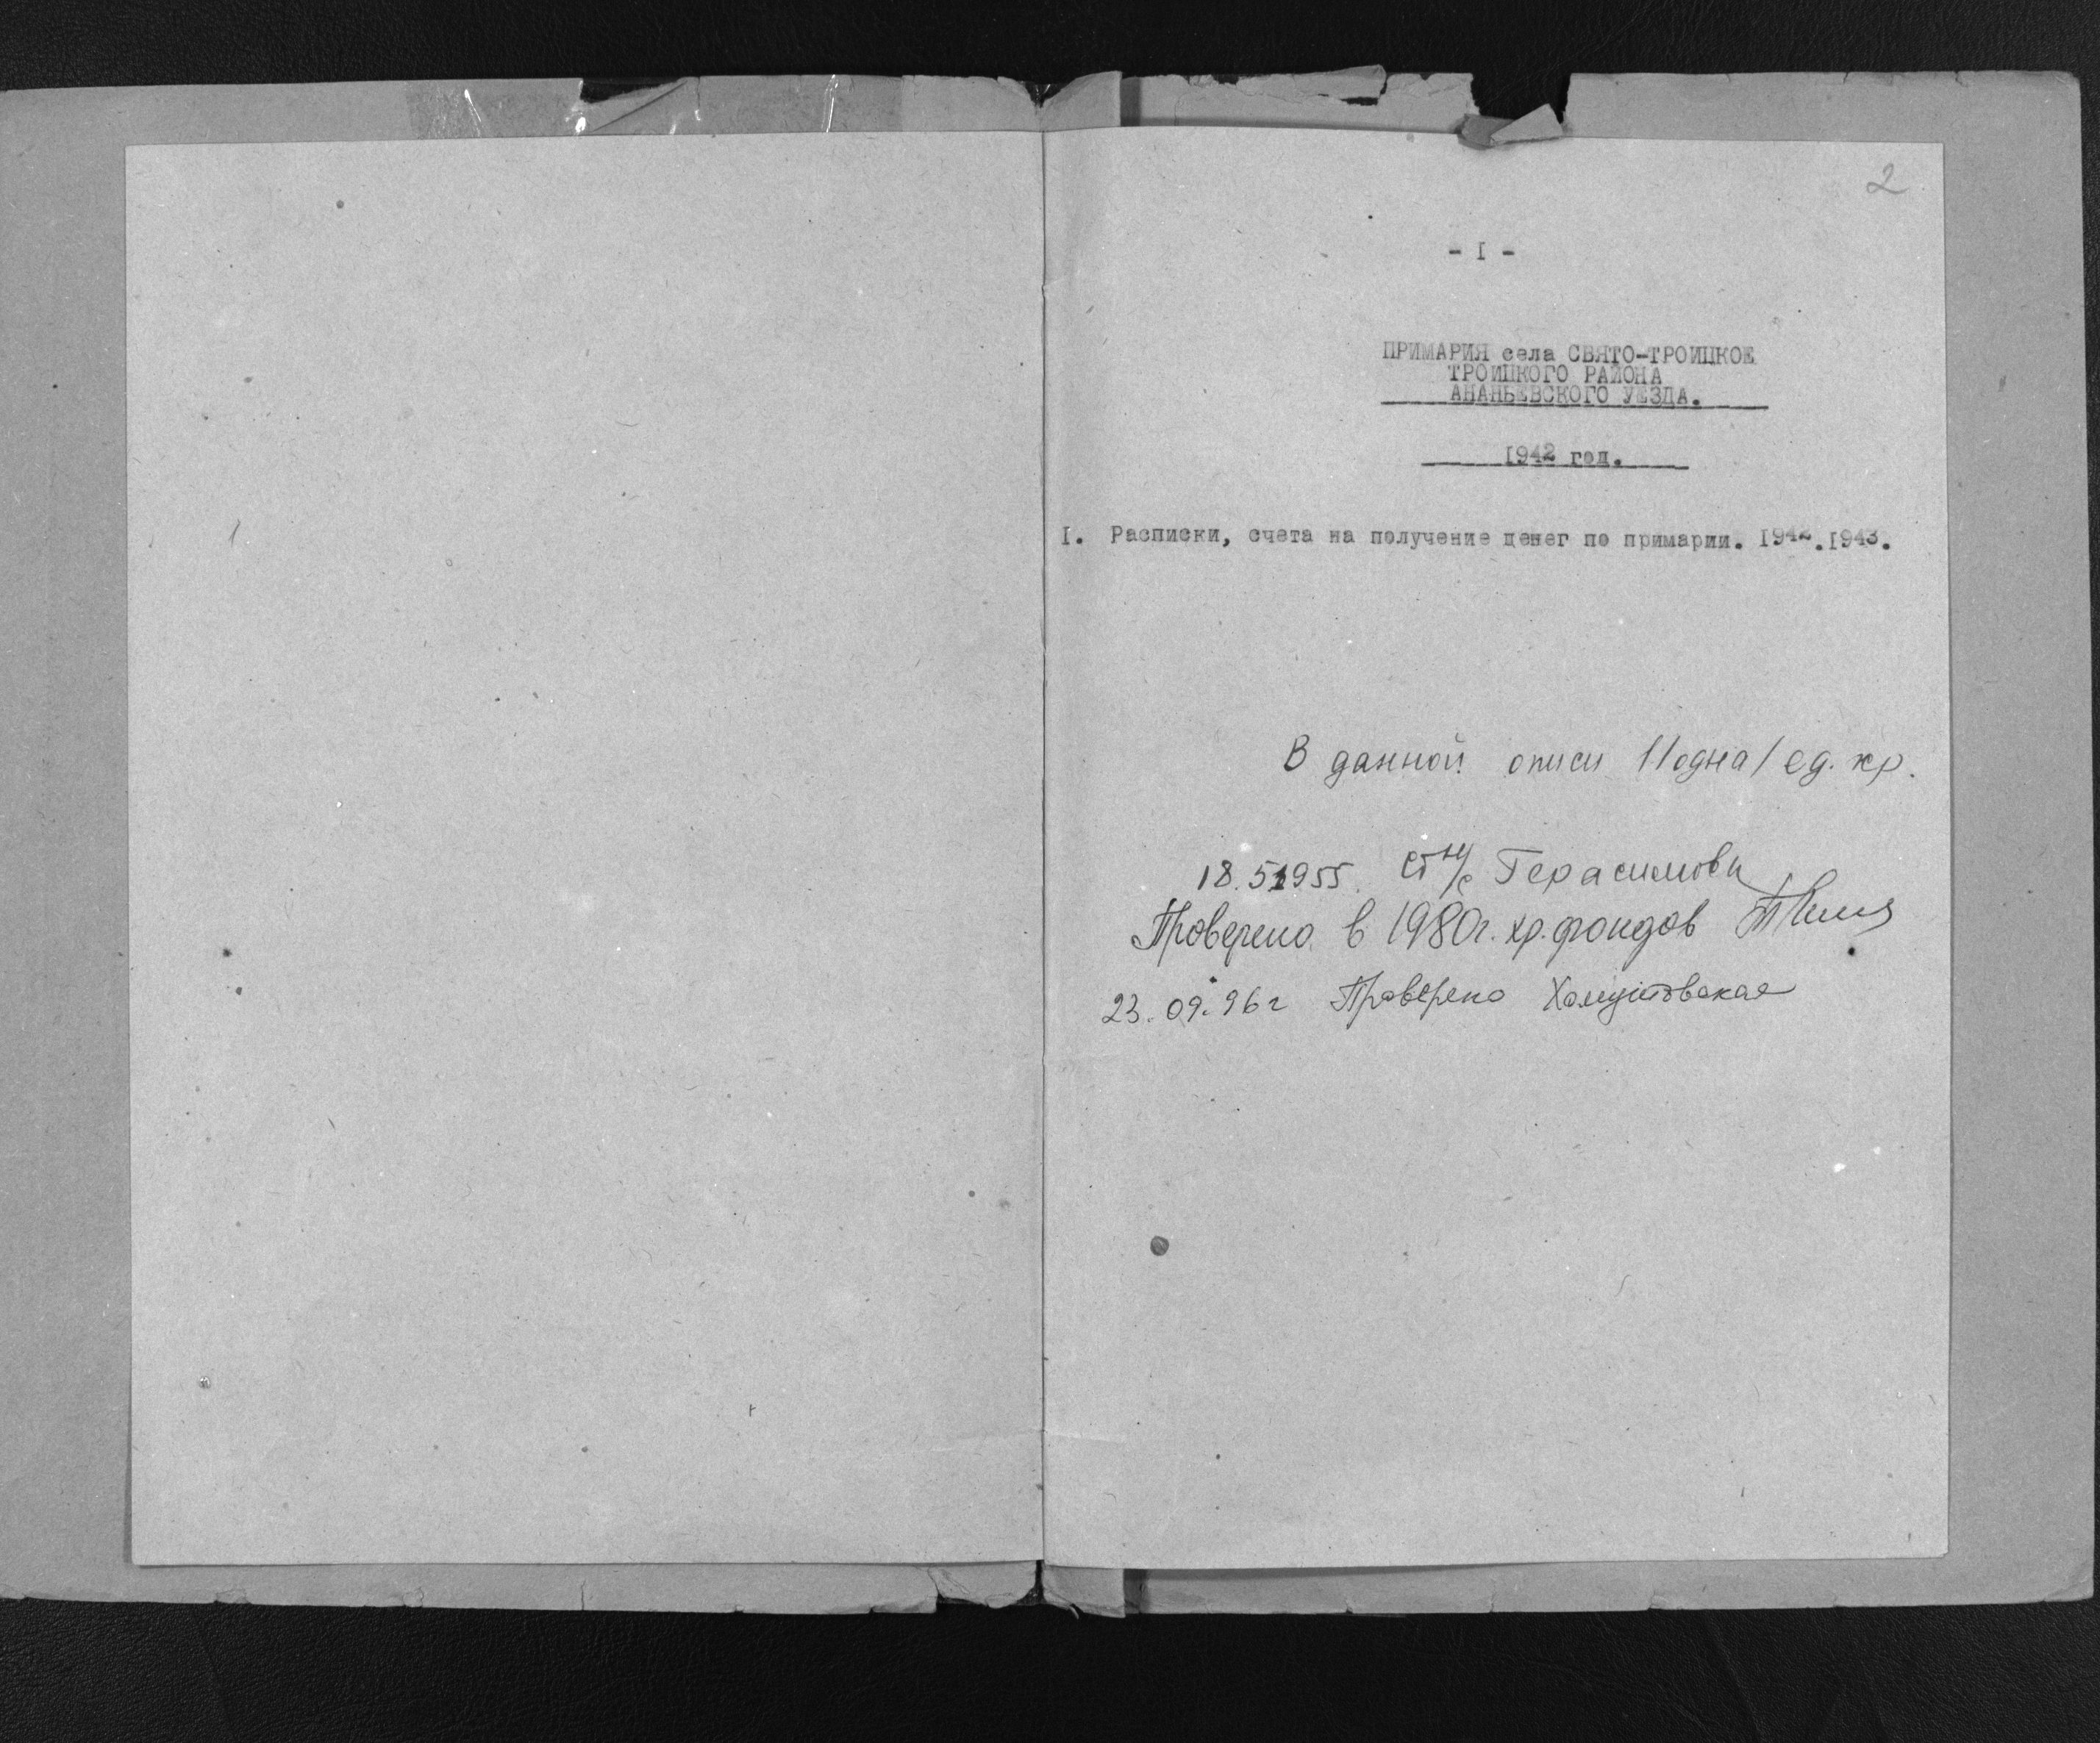 2
- I -
ПРИМАРИЯ села СВЯТО-ТРОИЦКОЕ
ТРОИЦКОГО РАЙОНА
АНАНЬЕВСКОГО УЕЗДА.
1942 год.
I. Расписки, счета на получение денег по примарии. I942.I943.
В данной описи 1/одна/ ед. хр.
18.5.1955. ст н/с Герасимова
Проверено в 1980г. хр. фондов
23.09.96г Проверено Хомутовская